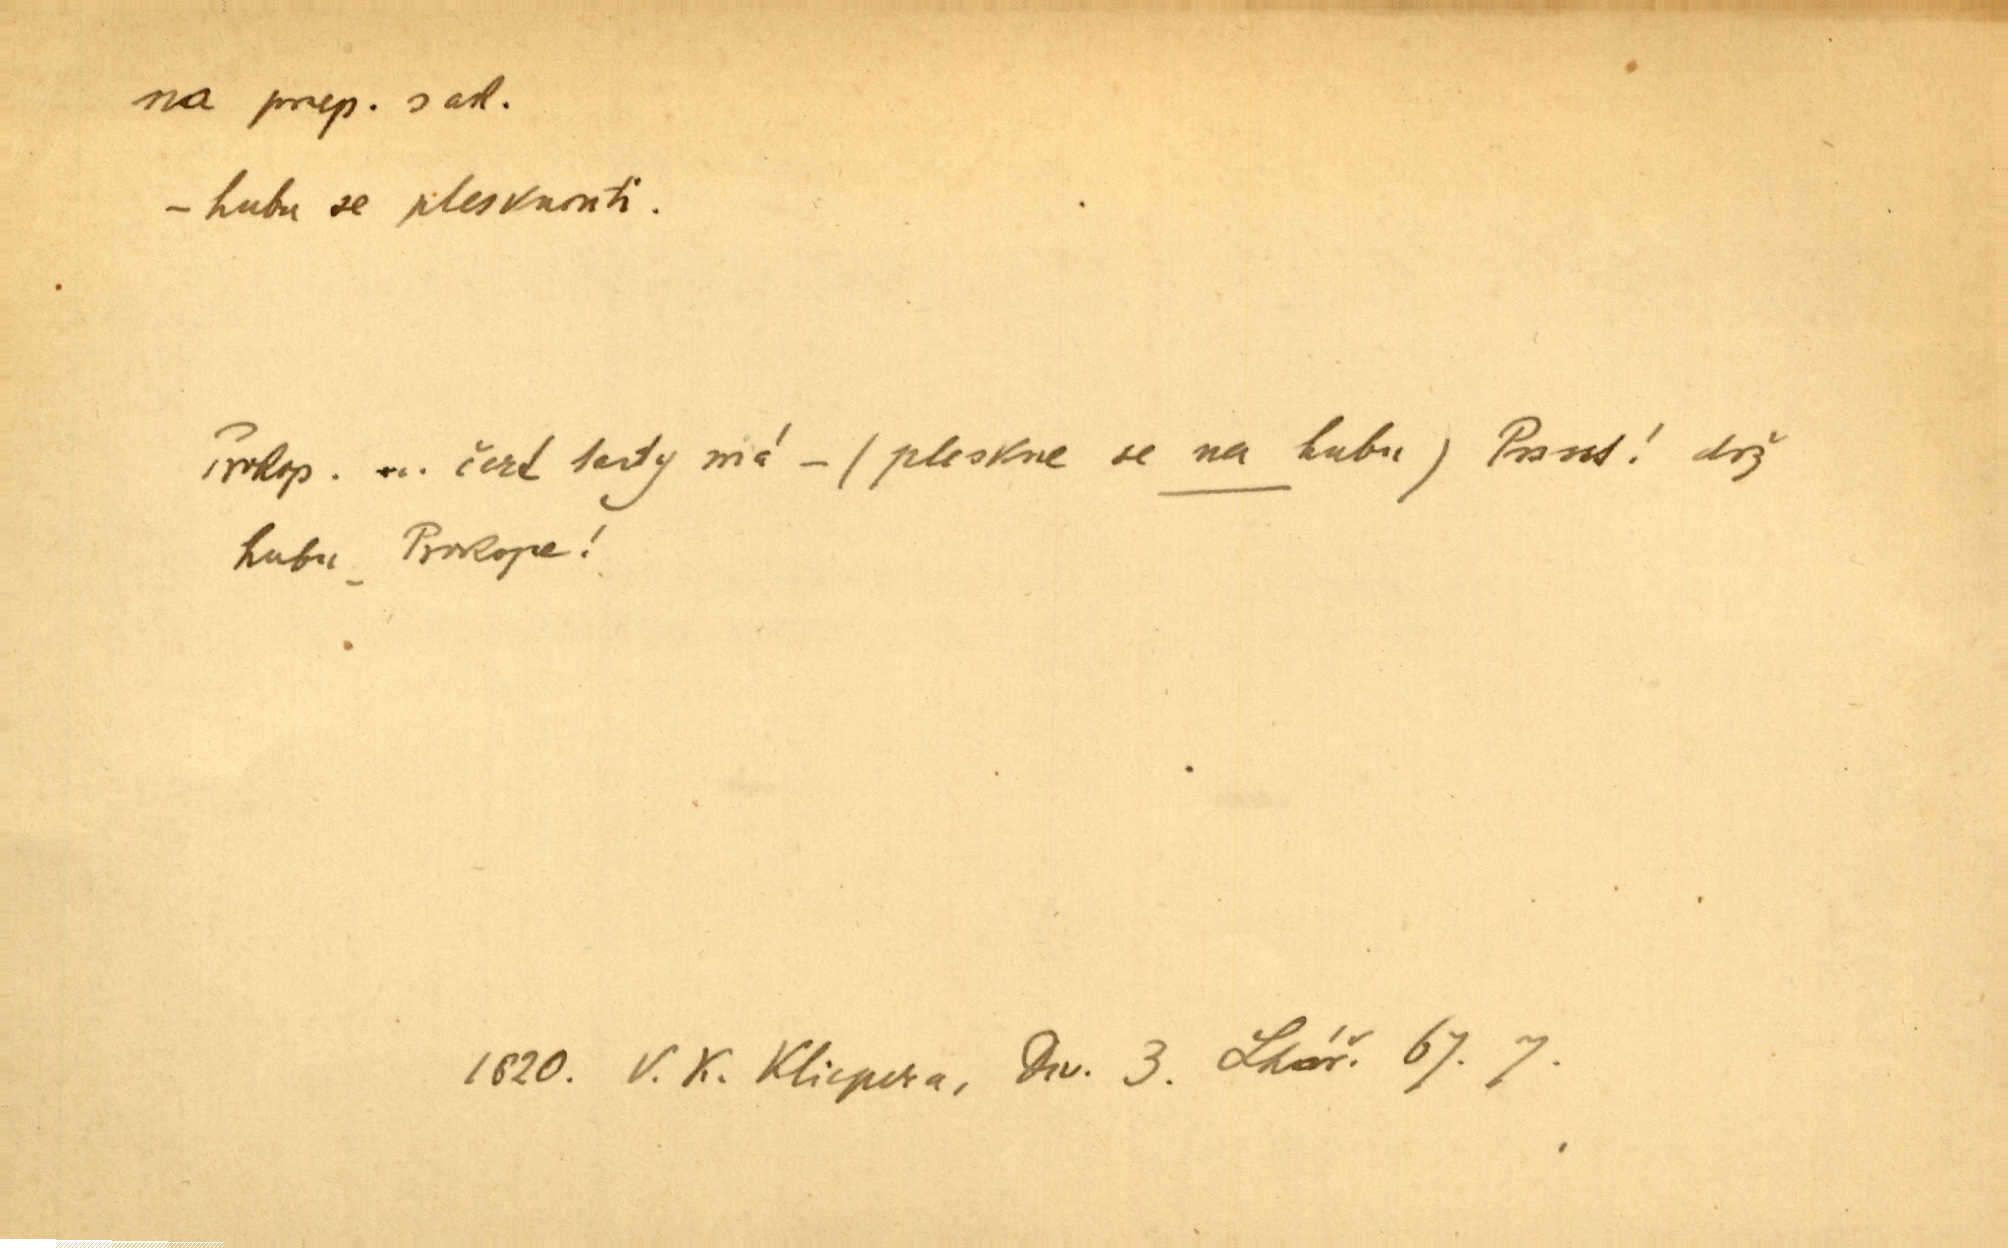 na praep. s ak.
– hubu se plesknouti.
Prokop. ... čert tady má – (pleskne se na hubu) Pssst! drž
hubu – Prokope!
1820. V. K. Klicpera, Div. 3. Lhář. 67. 7.